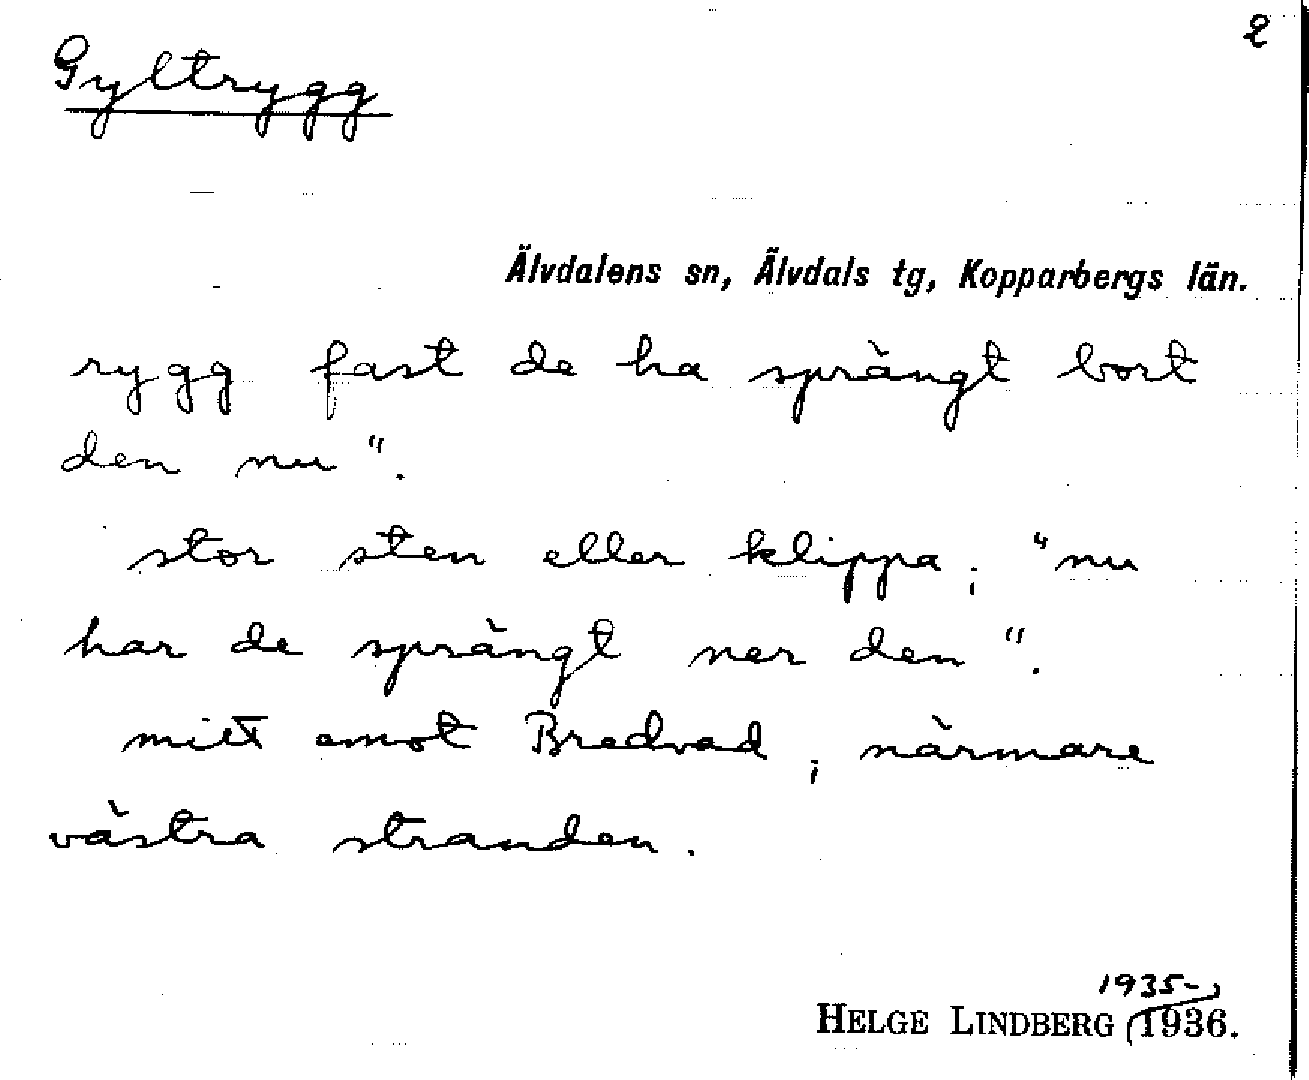 2
Gyltrygg
Älvdalens sn, Älvdals tg, Kopparbergs län.
rygg fast de ha sprängt bort
den nu".
stor sten eller klippa; "nu
har de sprängt ner den".
mitt emot Bredvad; närmare
västra stranden.
1935-
HELGE LINDBERG 1936.